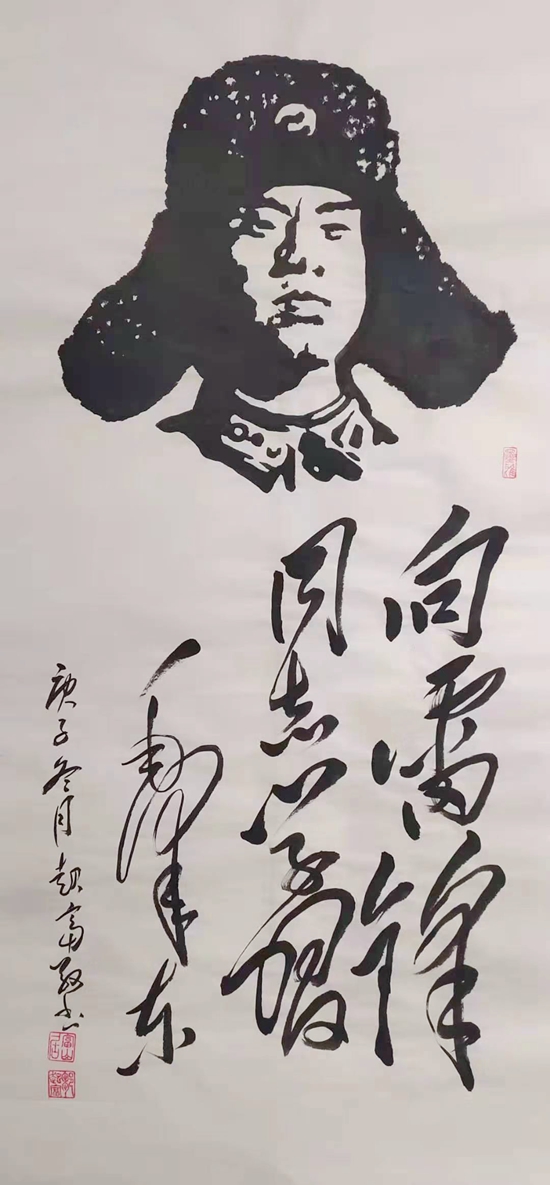 向雷锋
同志学习
毛泽东
庚子冬月赵富敬书